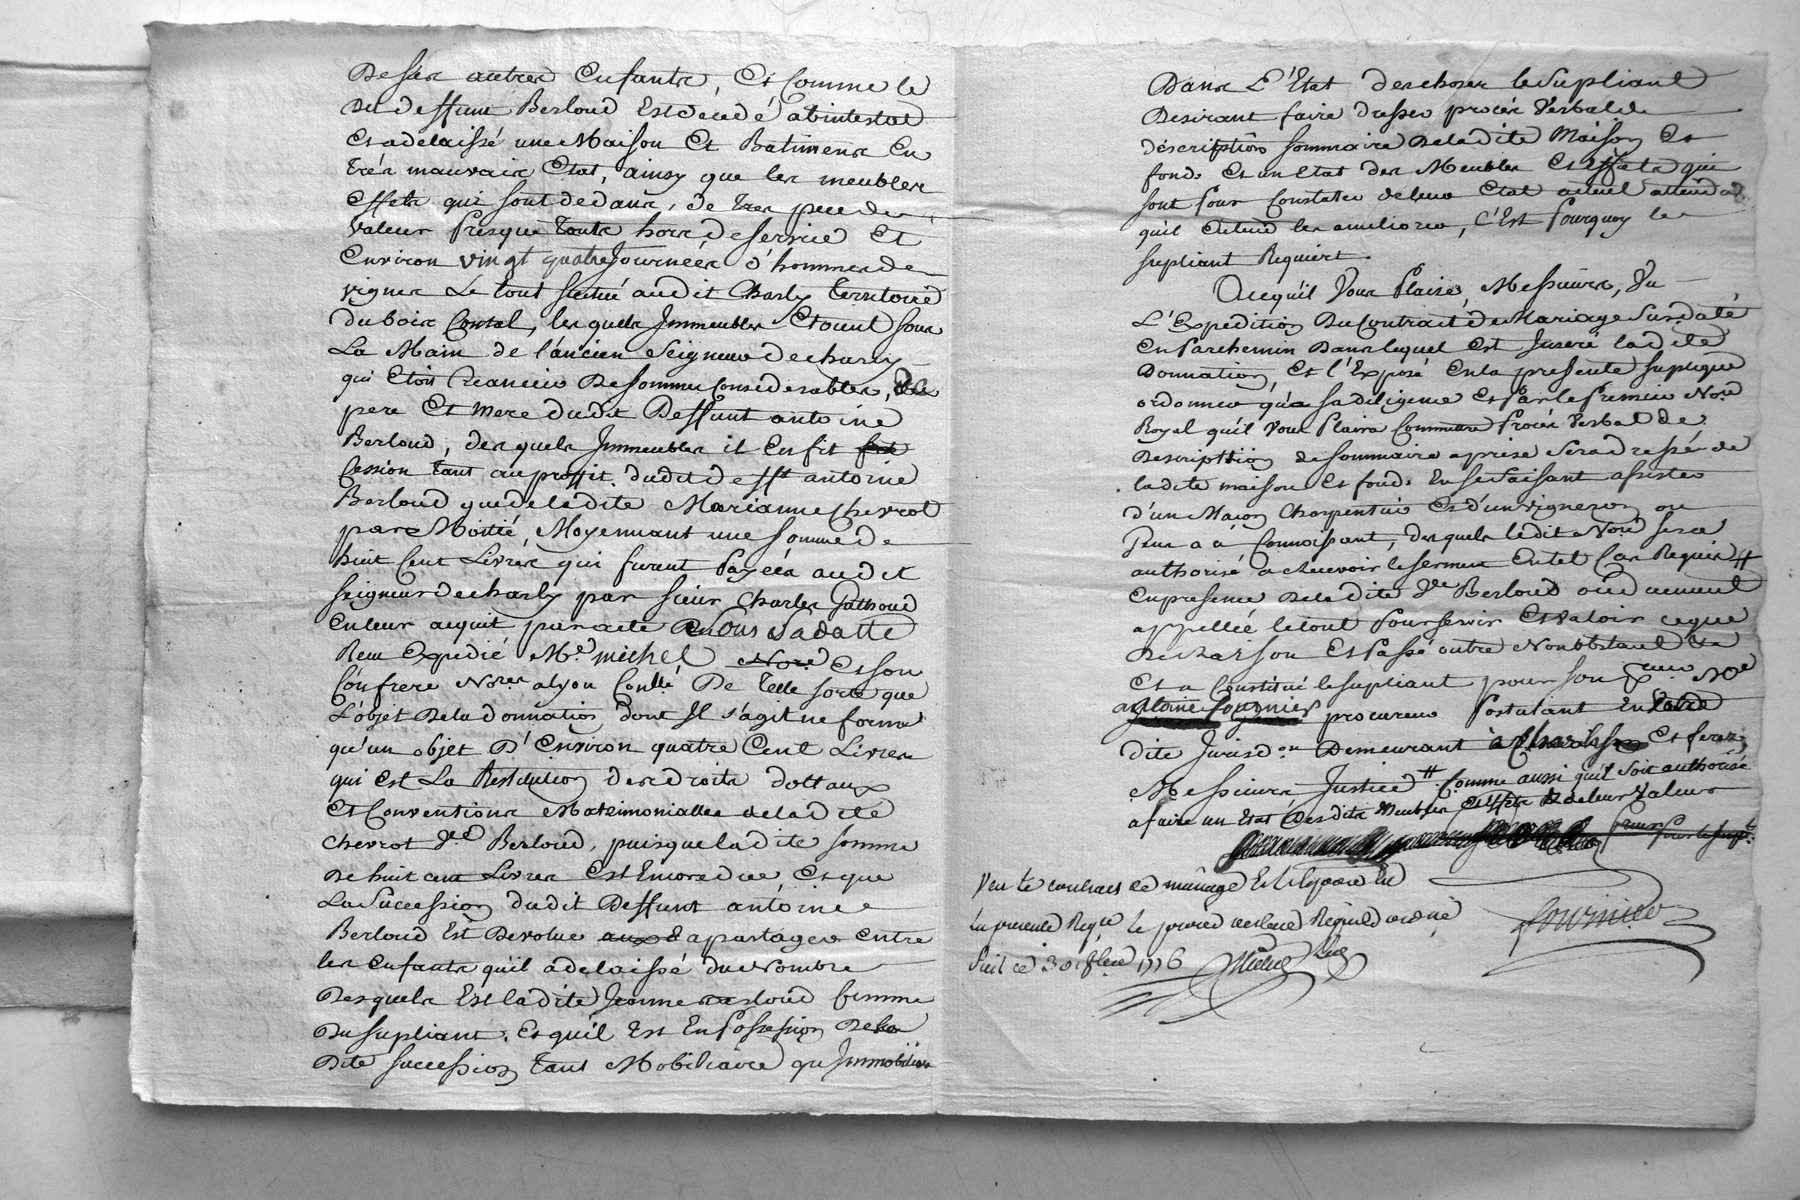 De ses autres Enfants, Et Comme le
Dit deffunt Berloud Est decedé abintestat
Et a delaissé une Maison Et Batimens En
très mauvais Etat, ainsy que les meubles
Effets qui sont dedans, de tres peu de
valeur presque touts hors de service Et
Environ vingt quatre Journées d'hommes de
vignes Le tout scitué audit Charly territoire
du bois Contal, les quels Immeubles Etoient sous
La Main de l'ancien Seigneur de charly
qui Etoit Creancier De sommes Considerables, des
pere Et mere dudit Deffunt antoine
Berloud, des quels Immeubles il En fit
Cession tant au proffit dudit defft antoine
Berloud que de ladite Marianne Chevrot
par Moitié, Moyennant une somme de
huit Cent Livres qui furent Payées audit
seigneur de charly par sieur Charles
En leur acquit par acte sa datte
Reçu Expedié Me michel Nore Et son
Confrere Nores a lyon Conllé De telle sorte que
L'objet De la donnation dont Il s'agit ne forme
qu'un objet D'Environ quatre Cent Livres
qui est La Restitution des droits dottaux
Et Conventions Matrimonialles de ladite
Chevrot Ve Berloud, puisque ladite somme
De huit cent Livres Est Encore due Et que
La Succession dudit Deffunt antoine
Berloud Est Devolue a partager Entre
les Enfants qu'il a delaissé du Nombre
Desquels Est ladite Jeanne Berloud femme
Du supliant. Et qu'il Est En Possession De la
Dite succession tant Mobiliaire qu'Immobiliaire
Dans L'Etat des choses le Supliant
Desirant faire dresser procès Verbal de
déscription sommaire De ladite Maison Et
fonds Et un Etat des Meubles Et Effets qui
sont Pour Constater de leur Etat actuel attendu
qu'il Entend les ameliorer, C'Est Pourquoy le
supliant Requiert.
A ce qu'il Vous Plaise, Messieurs, Vu
L'Expedition Du Contrait de Mariage Sus daté
En Parchemin Dans lequel Est Inseré ladite
Donnation, Et l'Exposé En la presente suplique
ordonner qu'a sa diligence Et Par le Premier Nore
Royal qu'il Vous Plaira Commettre Procès Verbal de
Description de sommaire aprise sera dressé de
ladite maison Et fonds En se faisant assister
d'un Maçon Charpentier Et d'un vigneron ou
Gens a a Connoissant, des quels ledit Nore sera
authorisé a Recevoir le serment En tel Cas Requis #
En presence De ladite Ve Berloud ou dument
appellée le tout Pour servir Et valoir ce que
De Raison Et Passé outre Nonobstant &a
Et a Constitué le supliant pour son Me
antoine fournier procureur Postulant En
dite Jurisd.on Demeurant a Et ferez
Messieurs Justice # Comme aussi qu'il soit authorisé
a faire un Etat Desdits Meubles Et Effets De leur Valeur
pour le supt.
Veu le contract de mariage Et l'Exposé En
La presente Reqte le procureur
fait ce 3 1776
Michel
fournier